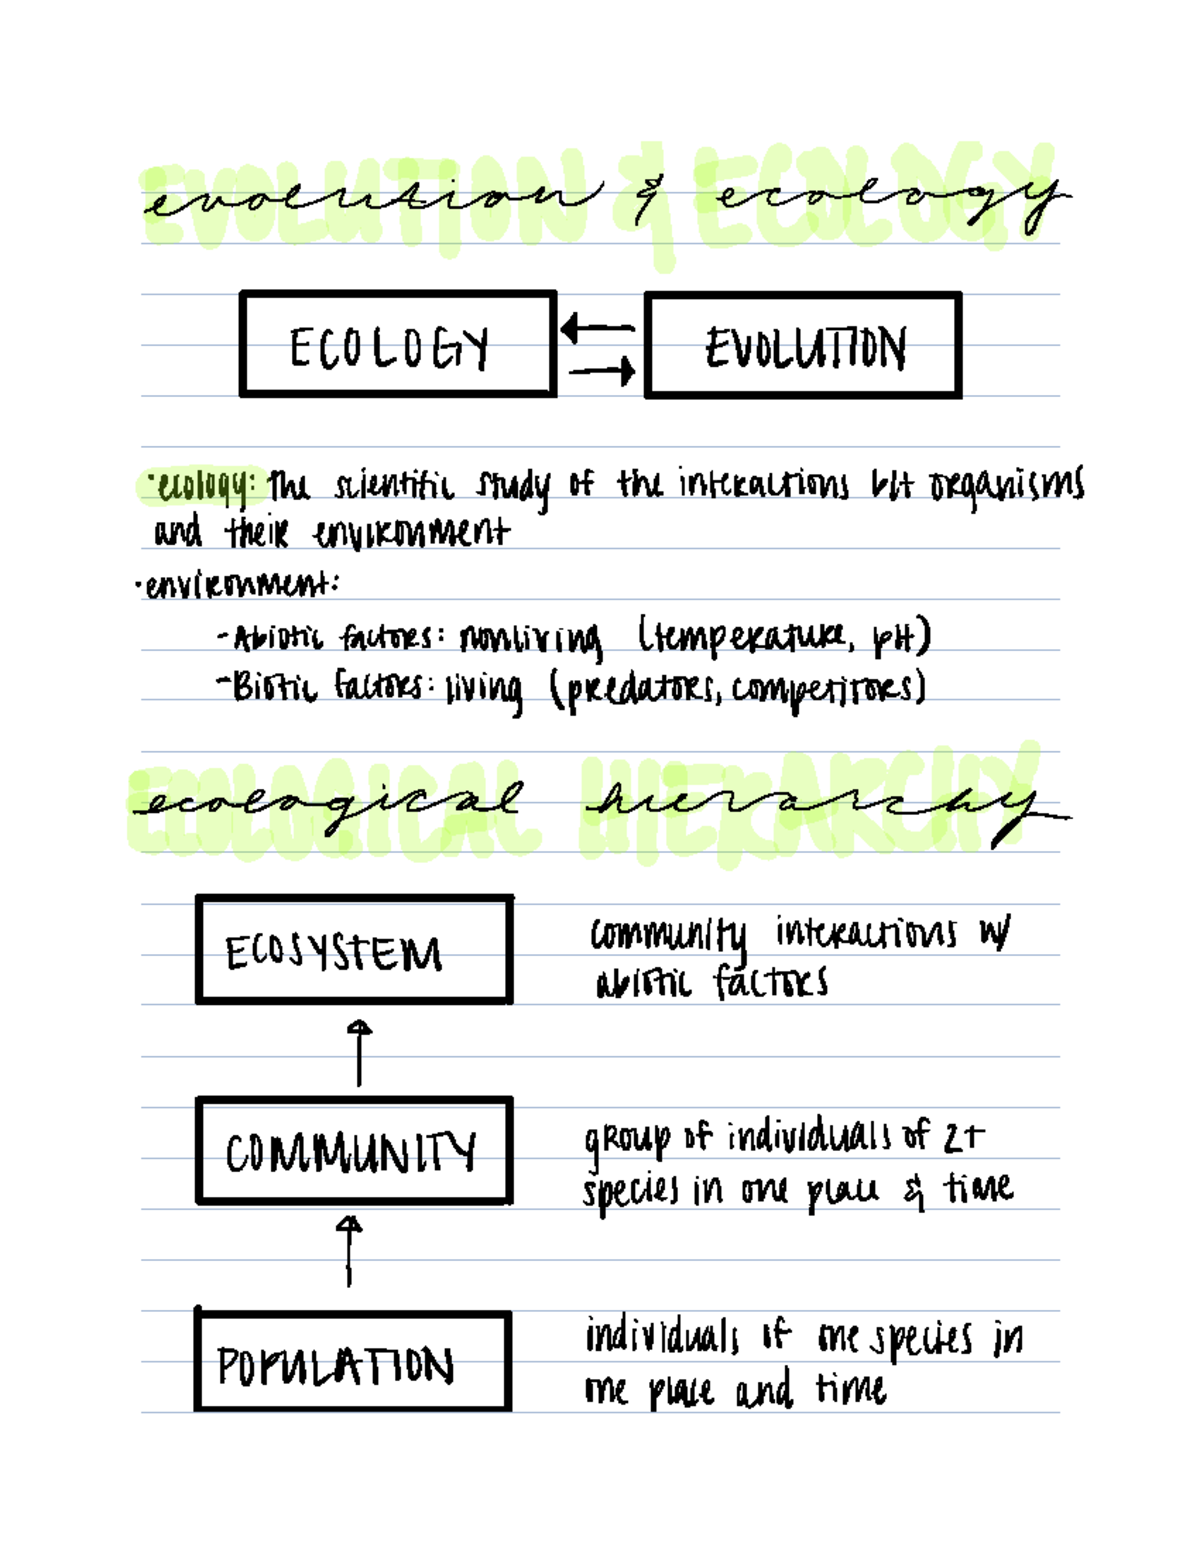 evolution & ecology
ECOLOGY
EVOLUTION
·ecology: The scientific study of the interactions b/t organisms
and their environment
·environment:
-Abiotic factors: nonliving (temperature, pH)
-Biotic factors: living (predators, competitors)
ecological hierarchy
ECOSYSTEM
community interactions w/
abiotic factors
COMMUNITY
group of individuals of 2+
species in one place & time
POPULATION
individuals of one species in
one place and time